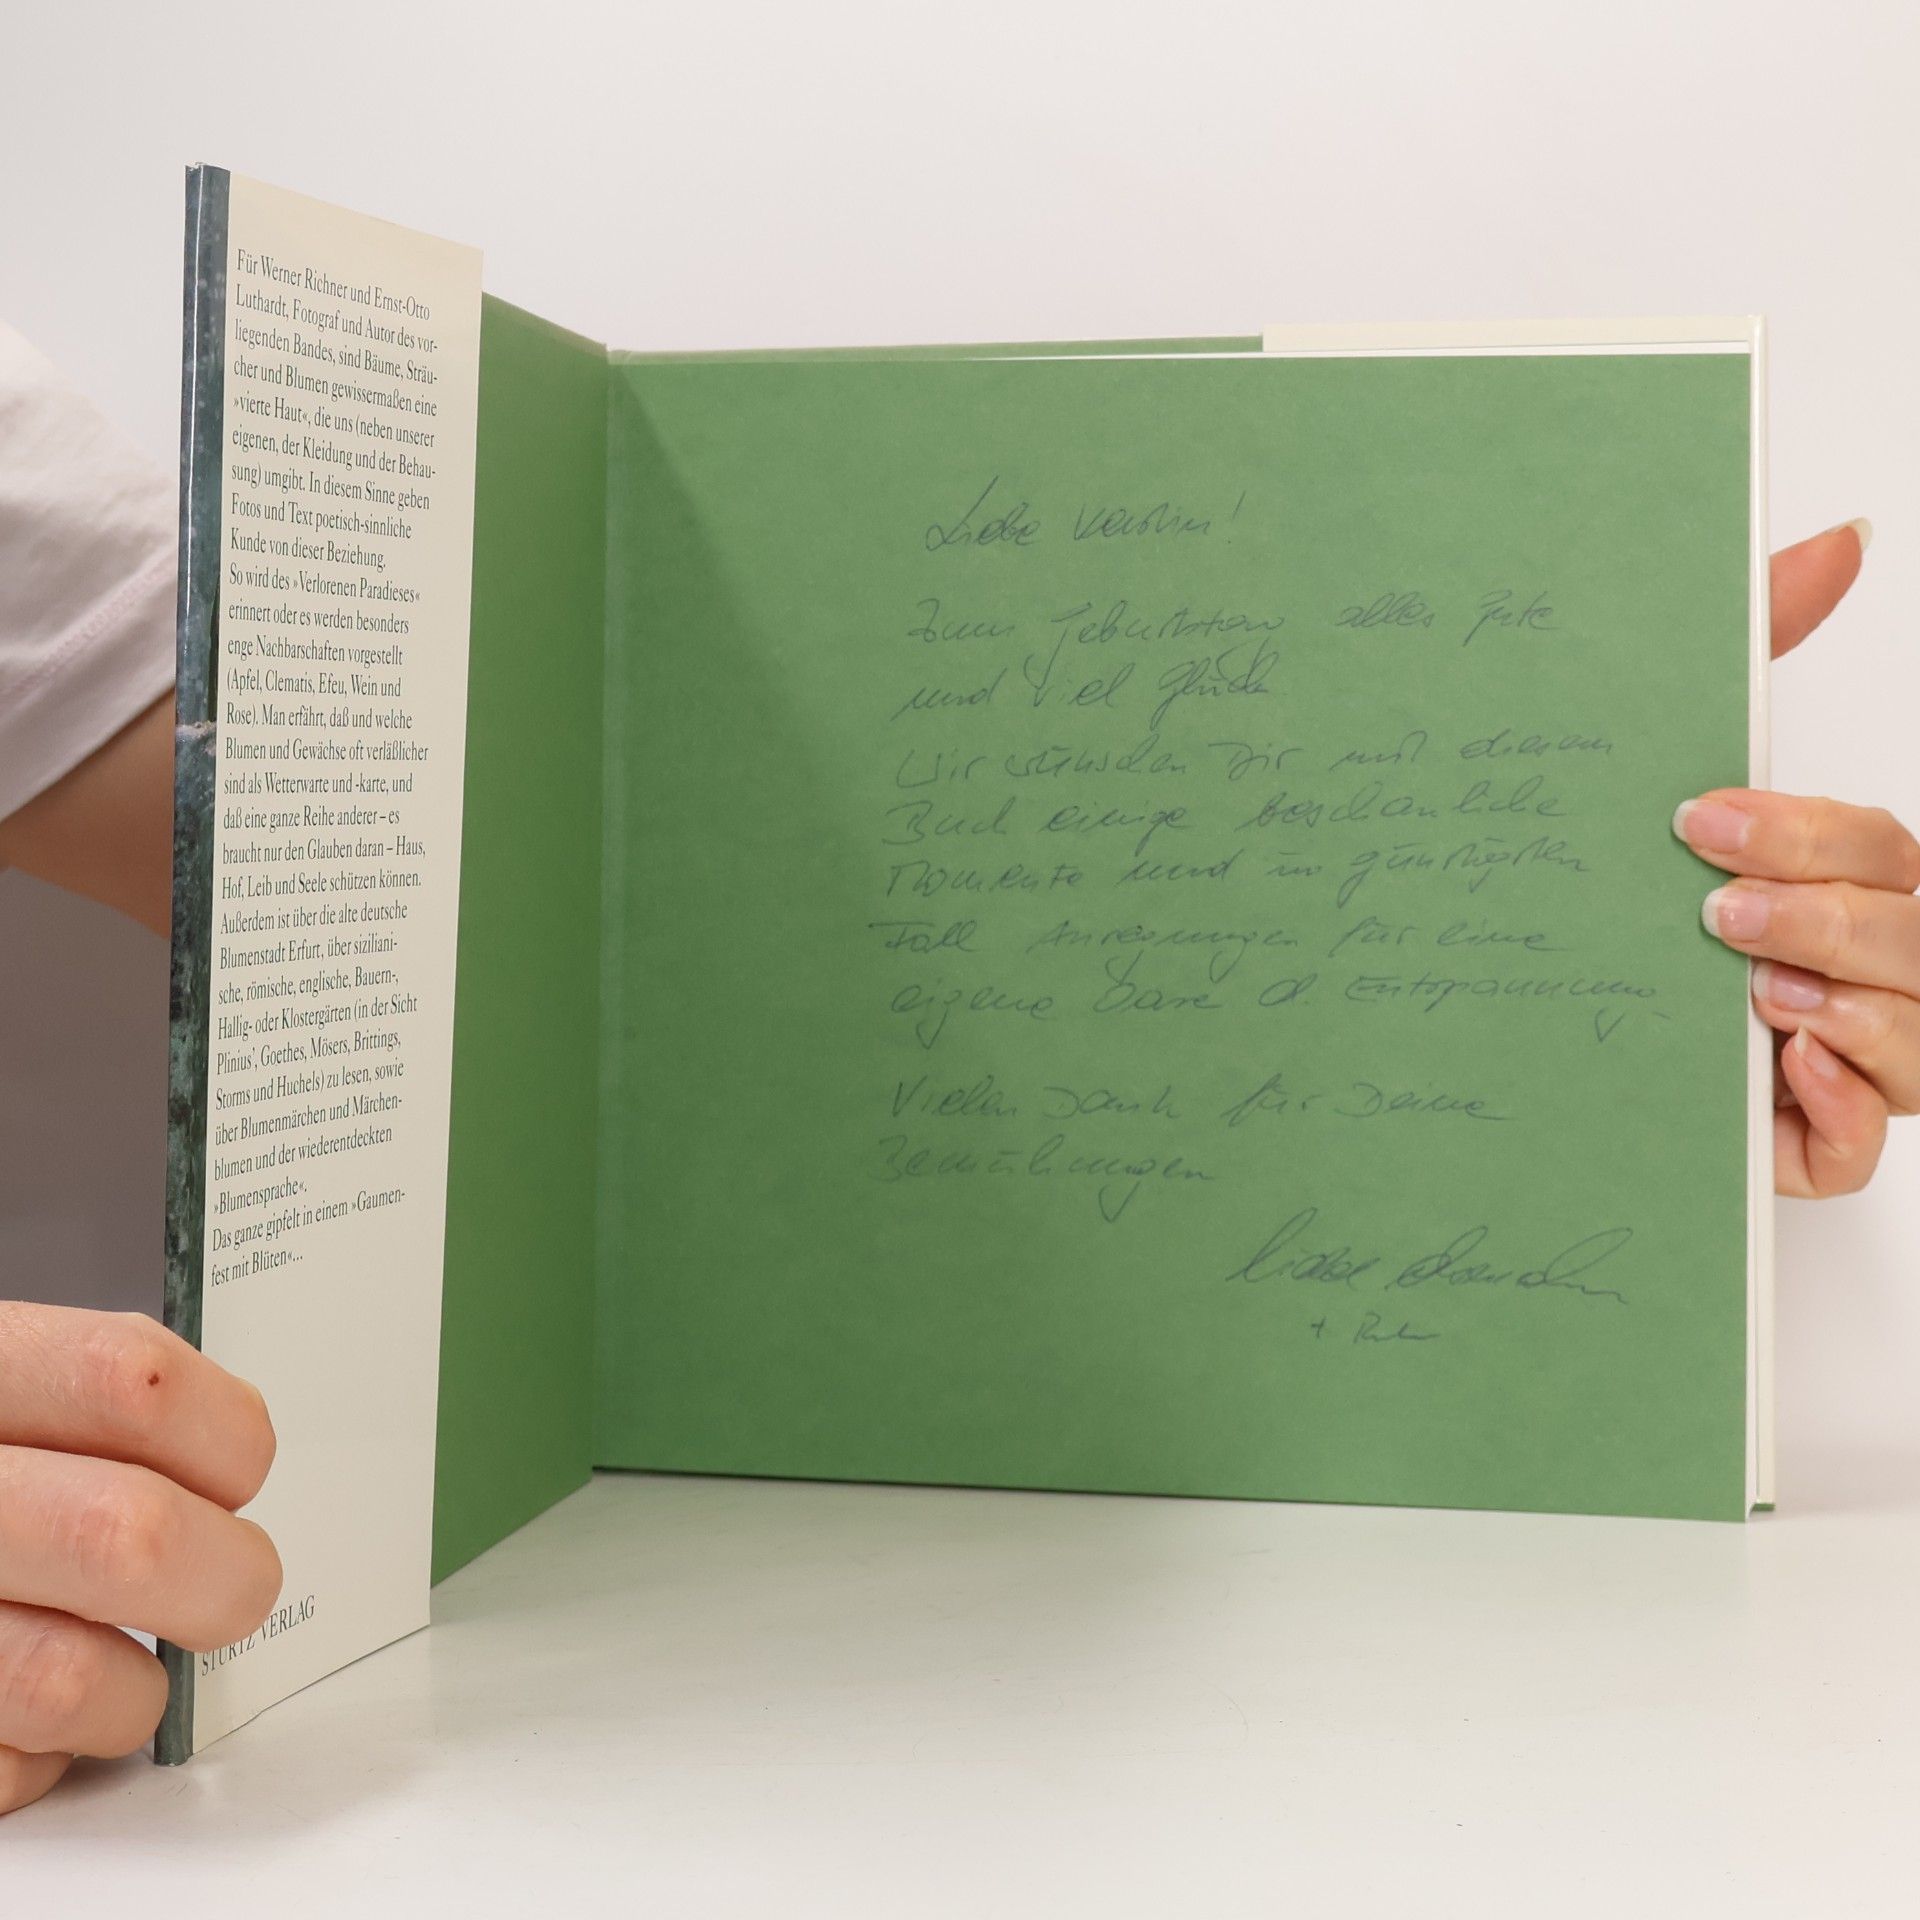 Für Werner Richner und Ernst-Otto
Luthardt, Fotograf und Autor des vor-
liegenden Bandes, sind Bäume, Sträu-
cher und Blumen gewissermaßen eine
»vierte Haut«, die uns (neben unserer
eigenen, der Kleidung und der Behau-
sung) umgibt. In diesem Sinne geben
Fotos und Text poetisch-sinnliche
Kunde von dieser Beziehung.
So wird des »Verlorenen Paradieses«
erinnert oder es werden besonders
enge Nachbarschaften vorgestellt
(Apfel, Clematis, Efeu, Wein und
Rose). Man erfährt, daß und welche
Blumen und Gewächse oft verläßlicher
sind als Wetterwarte und -karte, und
daß eine ganze Reihe anderer – es
braucht nur den Glauben daran – Haus,
Hof, Leib und Seele schützen können.
Außerdem ist über die alte deutsche
Blumenstadt Erfurt, über siziliani-
sche, römische, englische, Bauern-,
Hallig- oder Klostergärten (in der Sicht
Plinius', Goethes, Mösers, Brittings,
Storms und Huchels) zu lesen, sowie
über Blumenmärchen und Märchen-
blumen und der wiederentdeckten
»Blumensprache«.
Das ganze gipfelt in einem »Gaumen-
fest mit Blüten«...
STÜRTZ VERLAG
Liebe
Zum Geburtstag alles Gute
und viel Glück
Wir wünschen Dir mit diesem
Buch einige beschauliche
Momente und im günstigsten
Fall Anregungen für eine
eigene Oase d. Entspannung.
Vielen Dank für Deine
Bemühungen
+